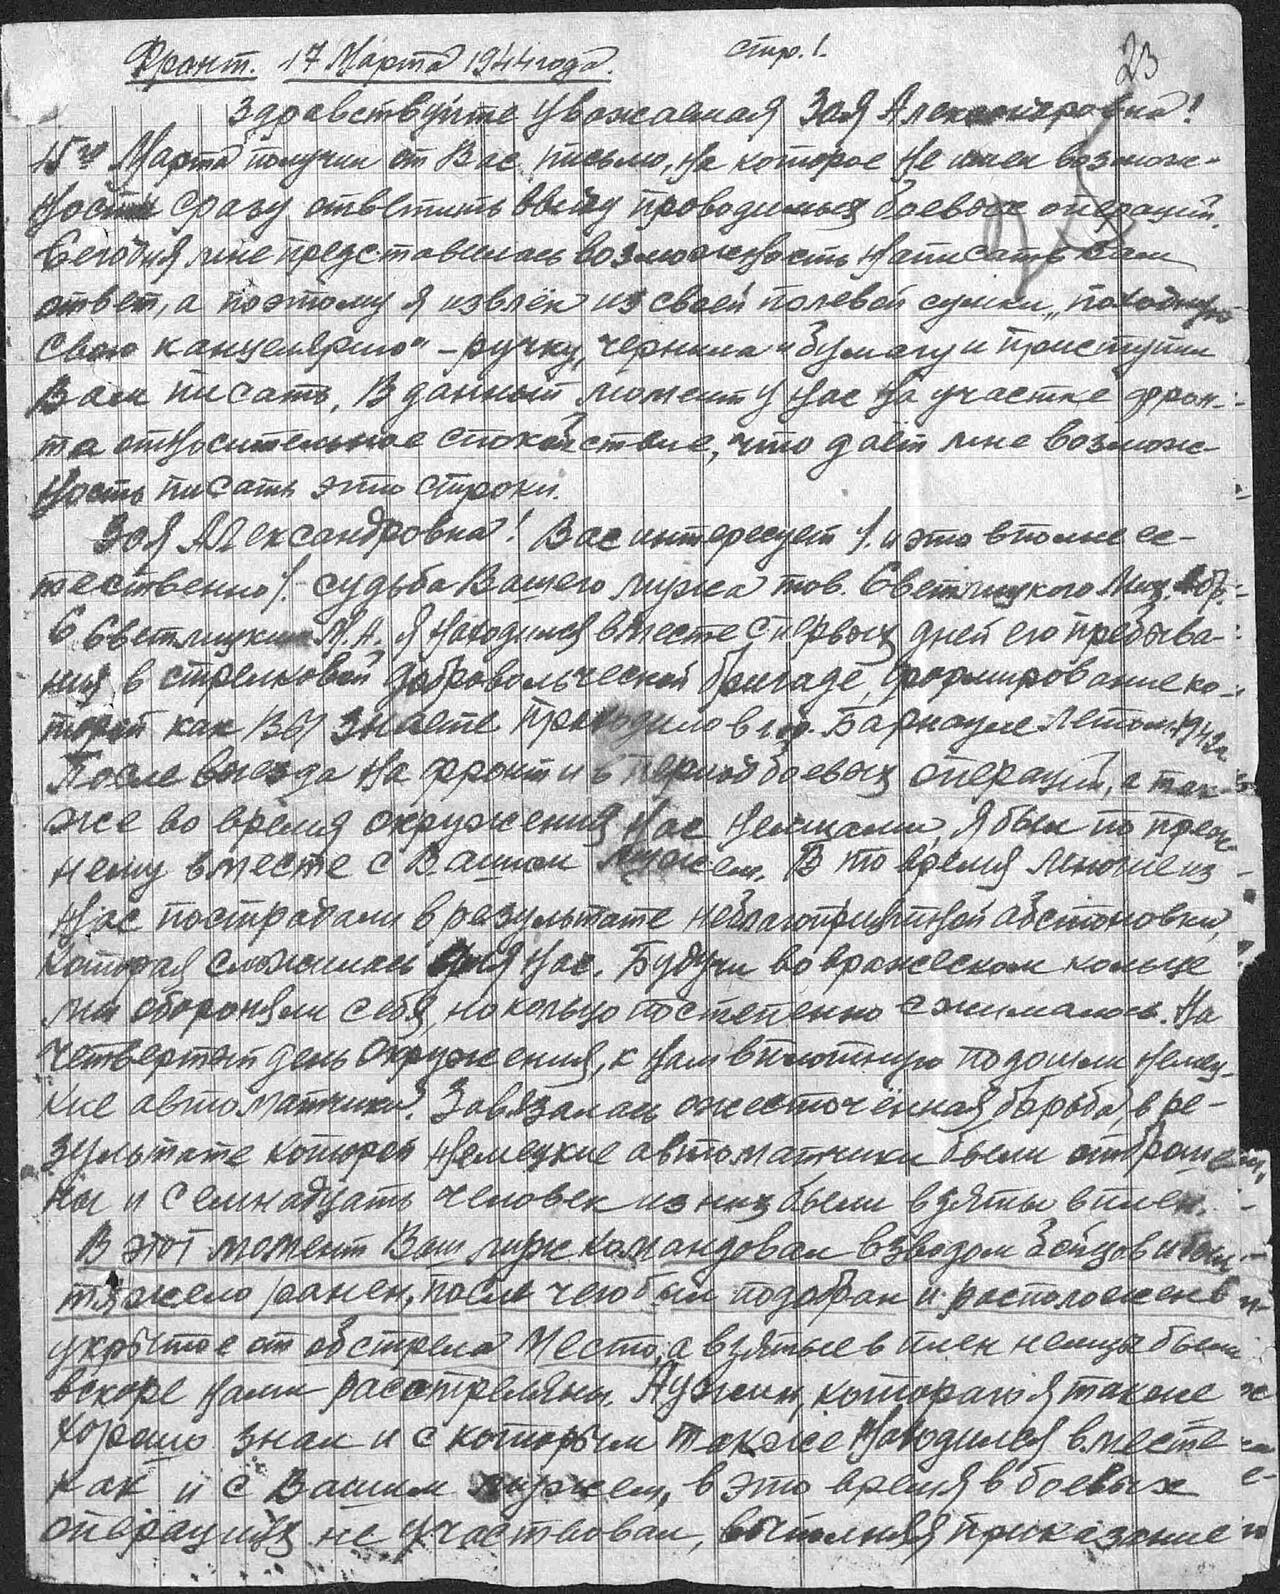 Фронт. 17 Марта 1944 года. стр. 1. 23
Здравствуйте уважаемая Зоя Александровна!
15го Марта получил от Вас письмо, на которое не имел возмож-
ности сразу ответить ввиду проводимых боевых операций.
Сегодня мне представилась возможность написать Вам
ответ, а поэтому я извлёк из своей полевой сумки „походную
свою канцелярию" – ручку, чернила и бумагу и приступил
Вам писать. В данный момент у нас на участке фрон-
та относительное спокойствие, что даёт мне возмож-
ность писать эти строки.
Зоя Александровна! Вас интересует /. и это вполне ес-
тественно /. судьба Вашего мужа тов. Светлицкого Мих.
С Светлицким М.А. я находился вместе с первых дней его пребыва-
ния в стрелковой добровольческой бригаде, формирование ко-
торой как Вы знаете проходило в гор. Барнауле летом 1942г.
После выезда на фронт и в период боевых операций, а так-
же во время окружения нас немцами, я был по преж-
нему вместе с Вашим мужем. В то время многие из
нас пострадали в результате неблагоприятной обстановки,
которая сложилась для нас. Будучи во вражеском кольце
мы обороняли себя, но кольцо постепенно сжималось. На
четвертый день окружения, к нам вплотную подошли немец-
кие автоматчики. Завязалась ожесточённая борьба, в ре-
зультате которой немецкие автоматчики были отброше-
ны и семнадцать человек из них были взяты в плен.
В этот момент Ваш муж командовал взводом бойцов и был
тяжело ранен, после чего был подобран и расположен в
укрытое от обстрела место, а взятые в плен немцы были
вскоре нами расстреляны. которого я также
хорошо знал и с которым также находился вместе
как и с Вашим мужем, в это время в боевых
операциях не участвовал, выполняя приказание